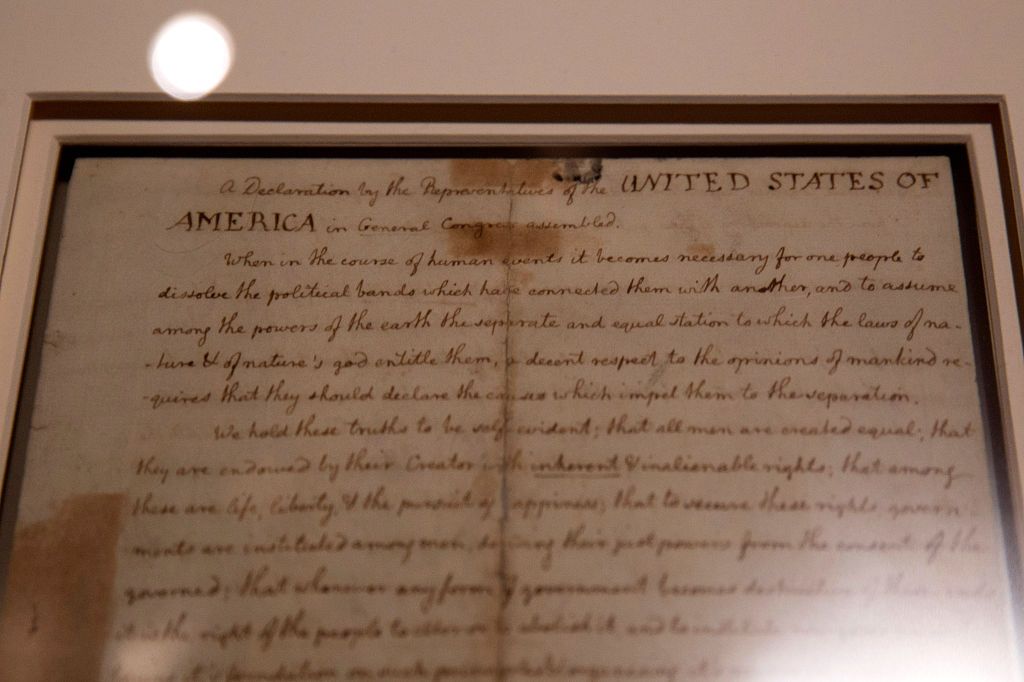 A Declaration by the Representatives of the UNITED STATES OF
AMERICA in General Congress assembled.
When in the course of human events it becomes necessary for one people to
dissolve the political bands which have connected them with another, and to assume
among the powers of the earth the separate and equal station to which the laws of na-
-ture & of nature's god entitle them, a decent respect to the opinions of mankind re-
-quires that they should declare the causes which impel them to the separation.
We hold these truths to be self evident; that all men are created equal; that
they are endowed by their Creator with inherent & inalienable rights; that among
these are life, liberty, & the pursuit of happiness; that to secure these rights, govern-
-ments are instituted among men, deriving their just powers from the consent of the
governed; that whenever any form of government becomes destructive of these
it is the right of the people to alter or to abolish it, and to institute